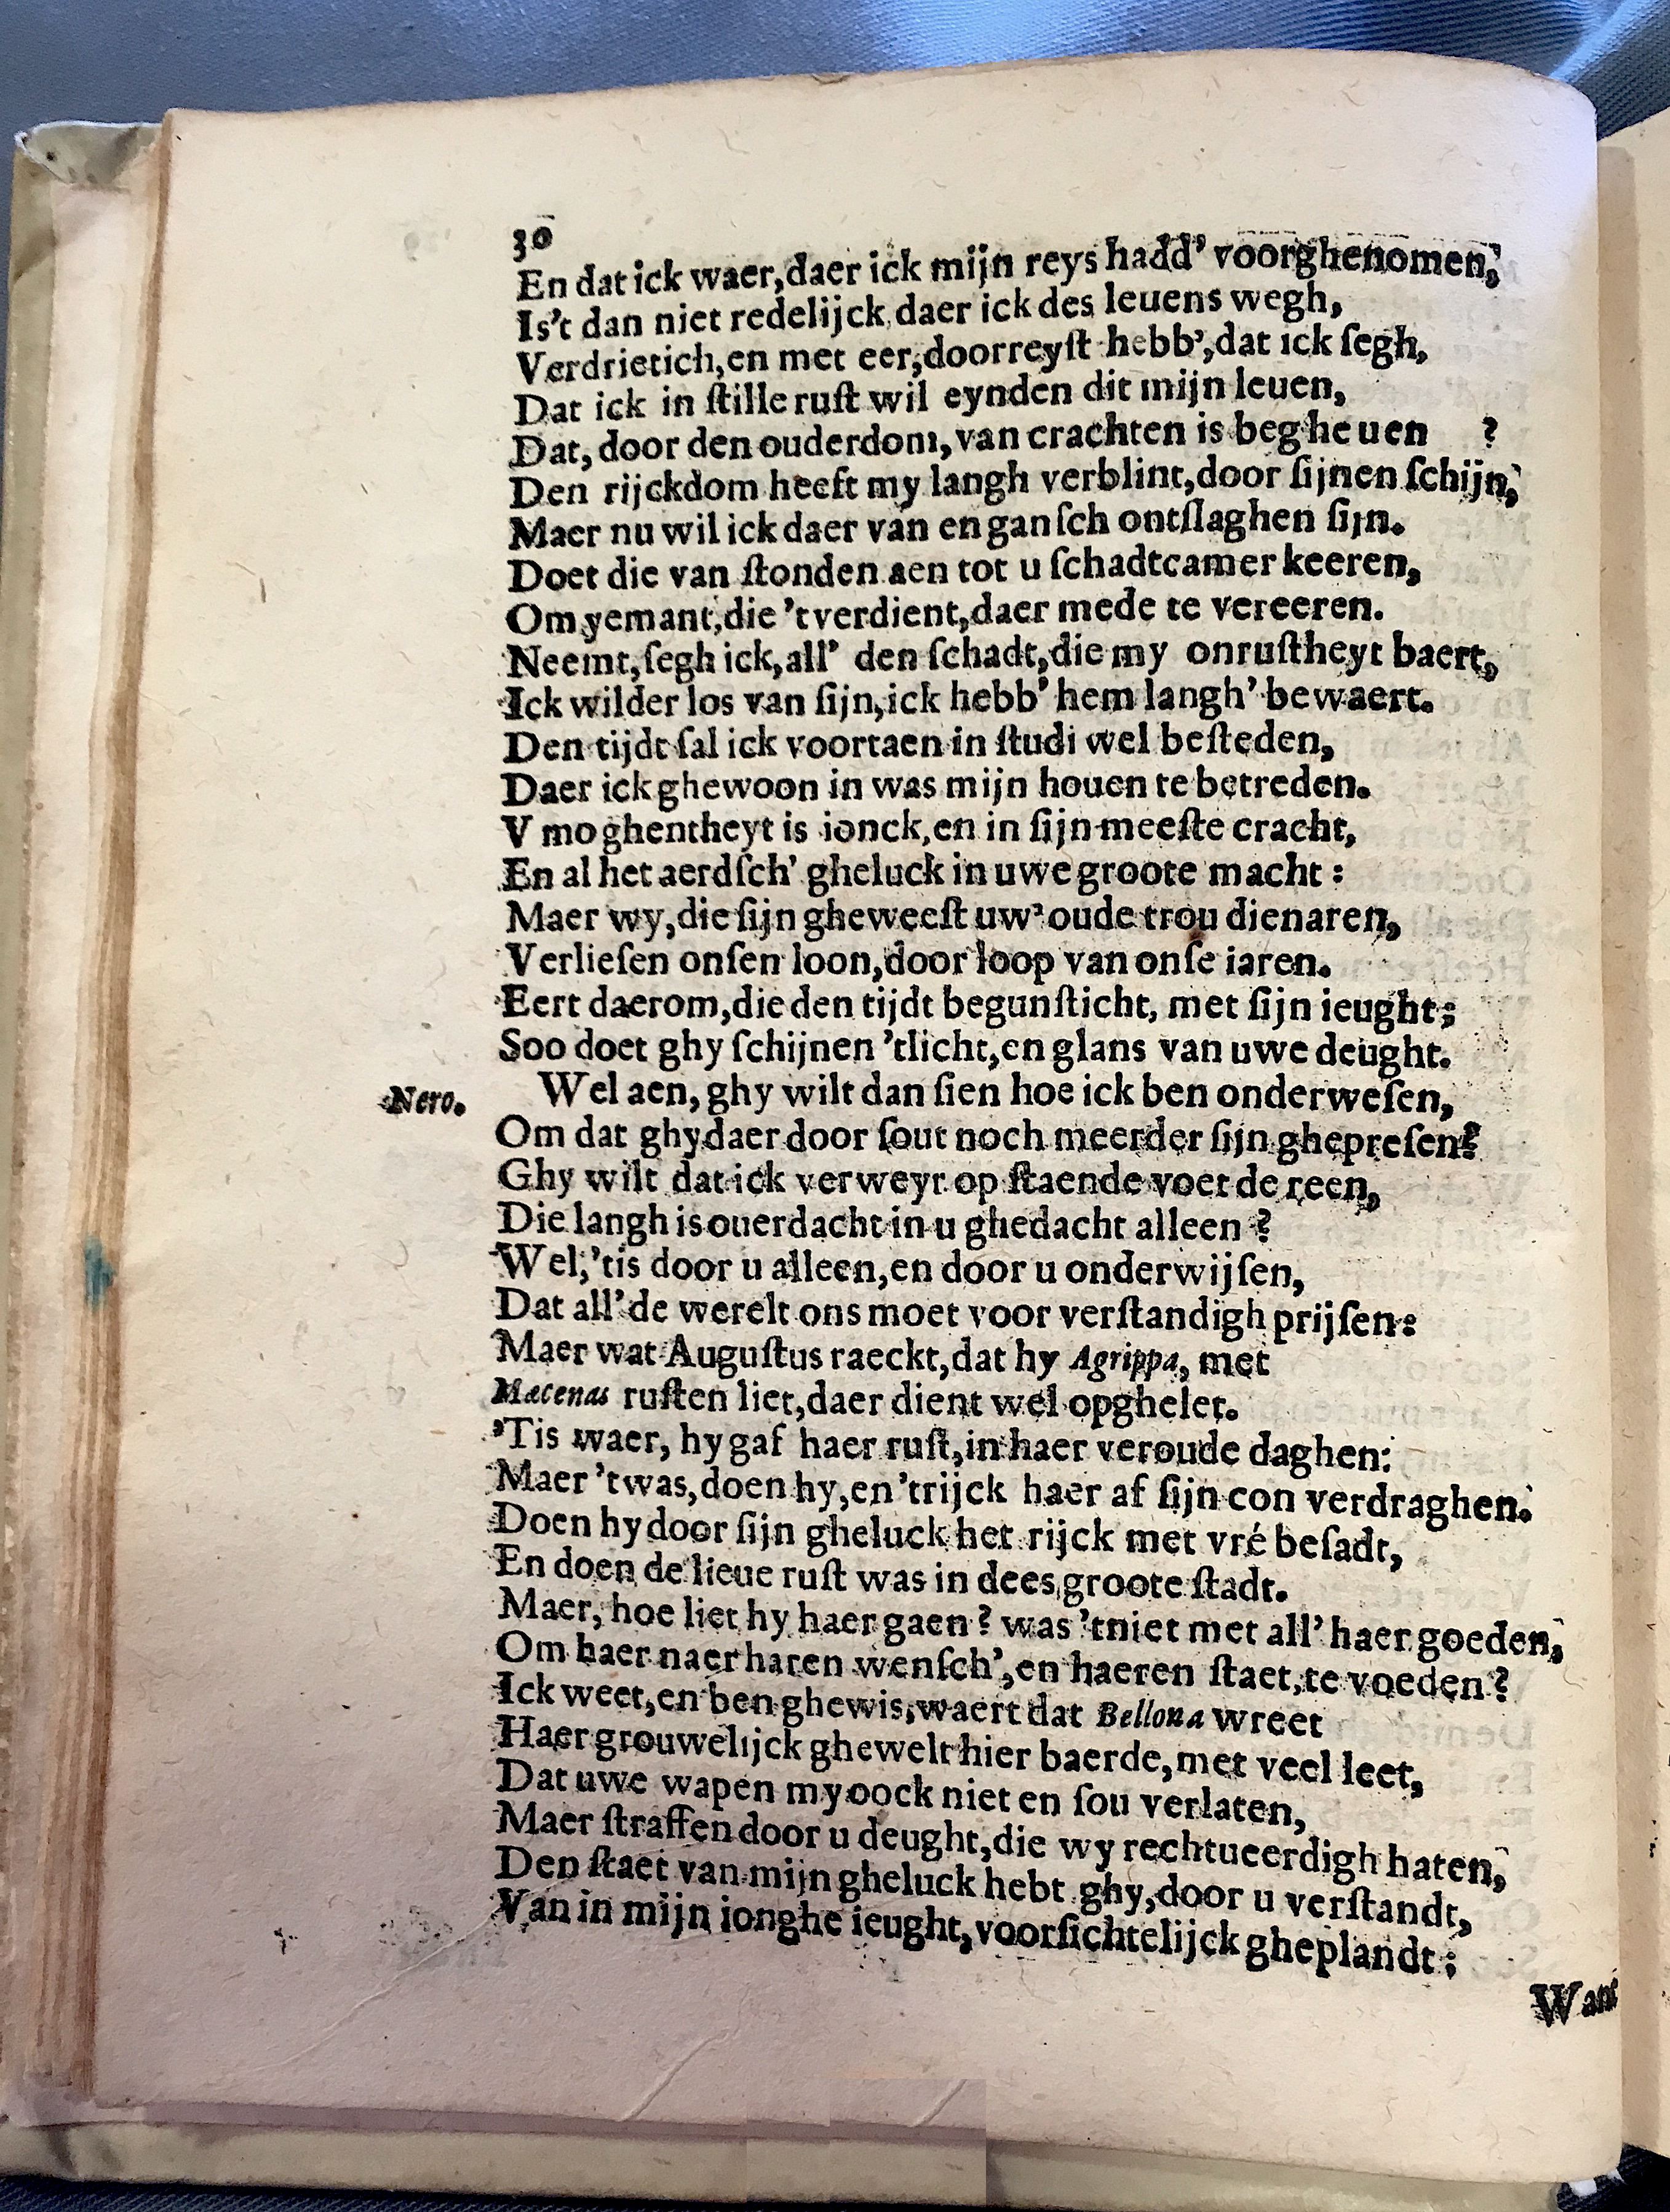 30
En dat ick waer, daer ick mijn reys hadd' voorghenomen,
Is't dan niet redelijck daer ick des leuens wegh,
Verdrietich, en met eer, doorreyſt hebb', dat ick ſegh,
Dat ick in ſtille ruſt wil eynden dit mijn leuen,
Dat, door den ouderdom, van crachten is begheuen ?
Den rijckdom heeft my langh verblint, door ſijnen ſchijn,
Maer nu wil ick daer van en ganſch ontſlaghen ſijn.
Doet die van ſtonden aen tot u ſchadtcamer keeren,
Om yemant, die 't verdient, daer mede te vereeren.
Neemt, ſegh ick, all' den ſchadt, die my onruſtheyt baert,
Ick wilder los van ſijn, ick hebb' hem langh' bewaert.
Den tijdt ſal ick voortaen in ſtudi wel beſteden,
Daer ick ghewoon in was mijn houen te betreden.
V moghentheyt is ionck, en in ſijn meeſte cracht,
En al het aerdſch' gheluck in uwe groote macht :
Maer wy, die ſijn gheweeſt uw' oude trou dienaren,
Verlieſen onſen loon, door loop van onſe iaren.
Eert daerom, die den tijdt begunſticht, met ſijn ieught;
Soo doet ghy ſchijnen 'tlicht, en glans van uwe deught.
Nero. Wel aen, ghy wilt dan ſien hoe ick ben onderweſen,
Om dat ghy daer door ſout noch meerder ſijn ghepreſen?
Ghy wilt dat ick verweyr op ſtaende voet de reen,
Die langh is ouerdacht in u ghedacht alleen ?
Wel, 'tis door u alleen, en door u onderwijſen,
Dat all' de werelt ons moet voor verſtandigh prijſen:
Maer wat Auguſtus raeckt, dat hy Agrippa, met
Mæcenas ruſten liet, daer dient wel opghelet.
'Tis waer, hy gaf haer ruſt, in haer veroude daghen:
Maer 't was, doen hy, en 'trijck haer af ſijn con verdraghen.
Doen hy door ſijn gheluck het rijck met vré beſadt,
En doen de lieue ruſt was in dees groote ſtadt.
Maer, hoe liet hy haer gaen ? was 'tniet met all' haer goeden,
Om haer naer haren wenſch', en haeren ſtaet, te voeden ?
Ick weet, en ben ghewis, waert dat Bellona wreet
Haer grouwelijck ghewelt hier baerde, met veel leet,
Dat uwe wapen my oock niet en ſou verlaten,
Maer ſtraffen door u deught, die wy rechtueerdigh haten,
Den ſtaet van mijn gheluck hebt ghy, door u verſtandt,
Van in mijn ionghe ieught, voorſichtelijck gheplandt ;
Want